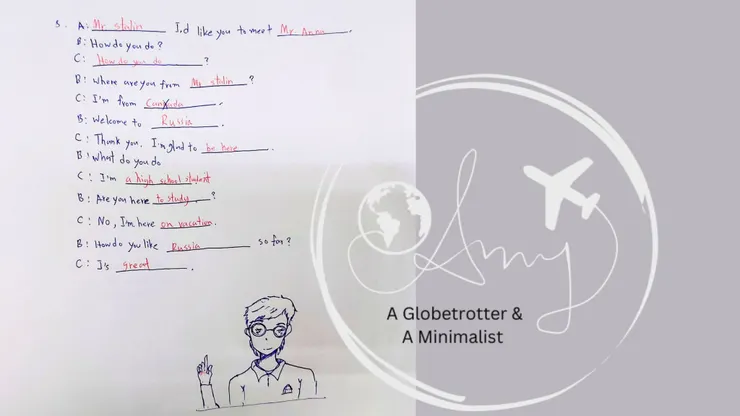 5. A: Mr stalin I,d like you to meet Mr. Anna.
B: How do you do?
C: How do you do?
B: Where are you from Mr stalin?
C: I'm from Cankada.
B: Welcome to Russia.
C: Thank you. I'm glad to be here.
B: What do you do
C: I'm a high school student
B: Are you here to study?
C: No, I'm here on vacation.
B: How do you like Russia so far?
C: I,s great.
Amy
A Globetrotter &
A Minimalist